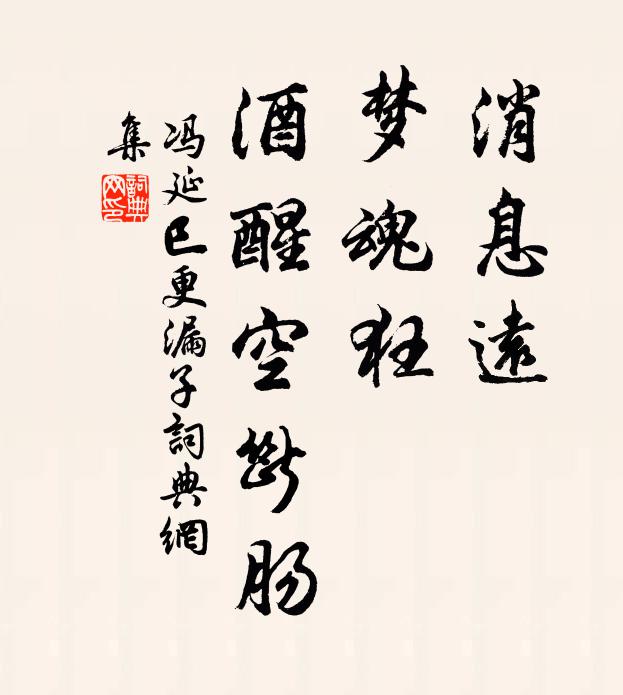 消息遠
梦魂狂
酒醒空断肠
冯延巳更漏子詞典網
集
詞典
网印